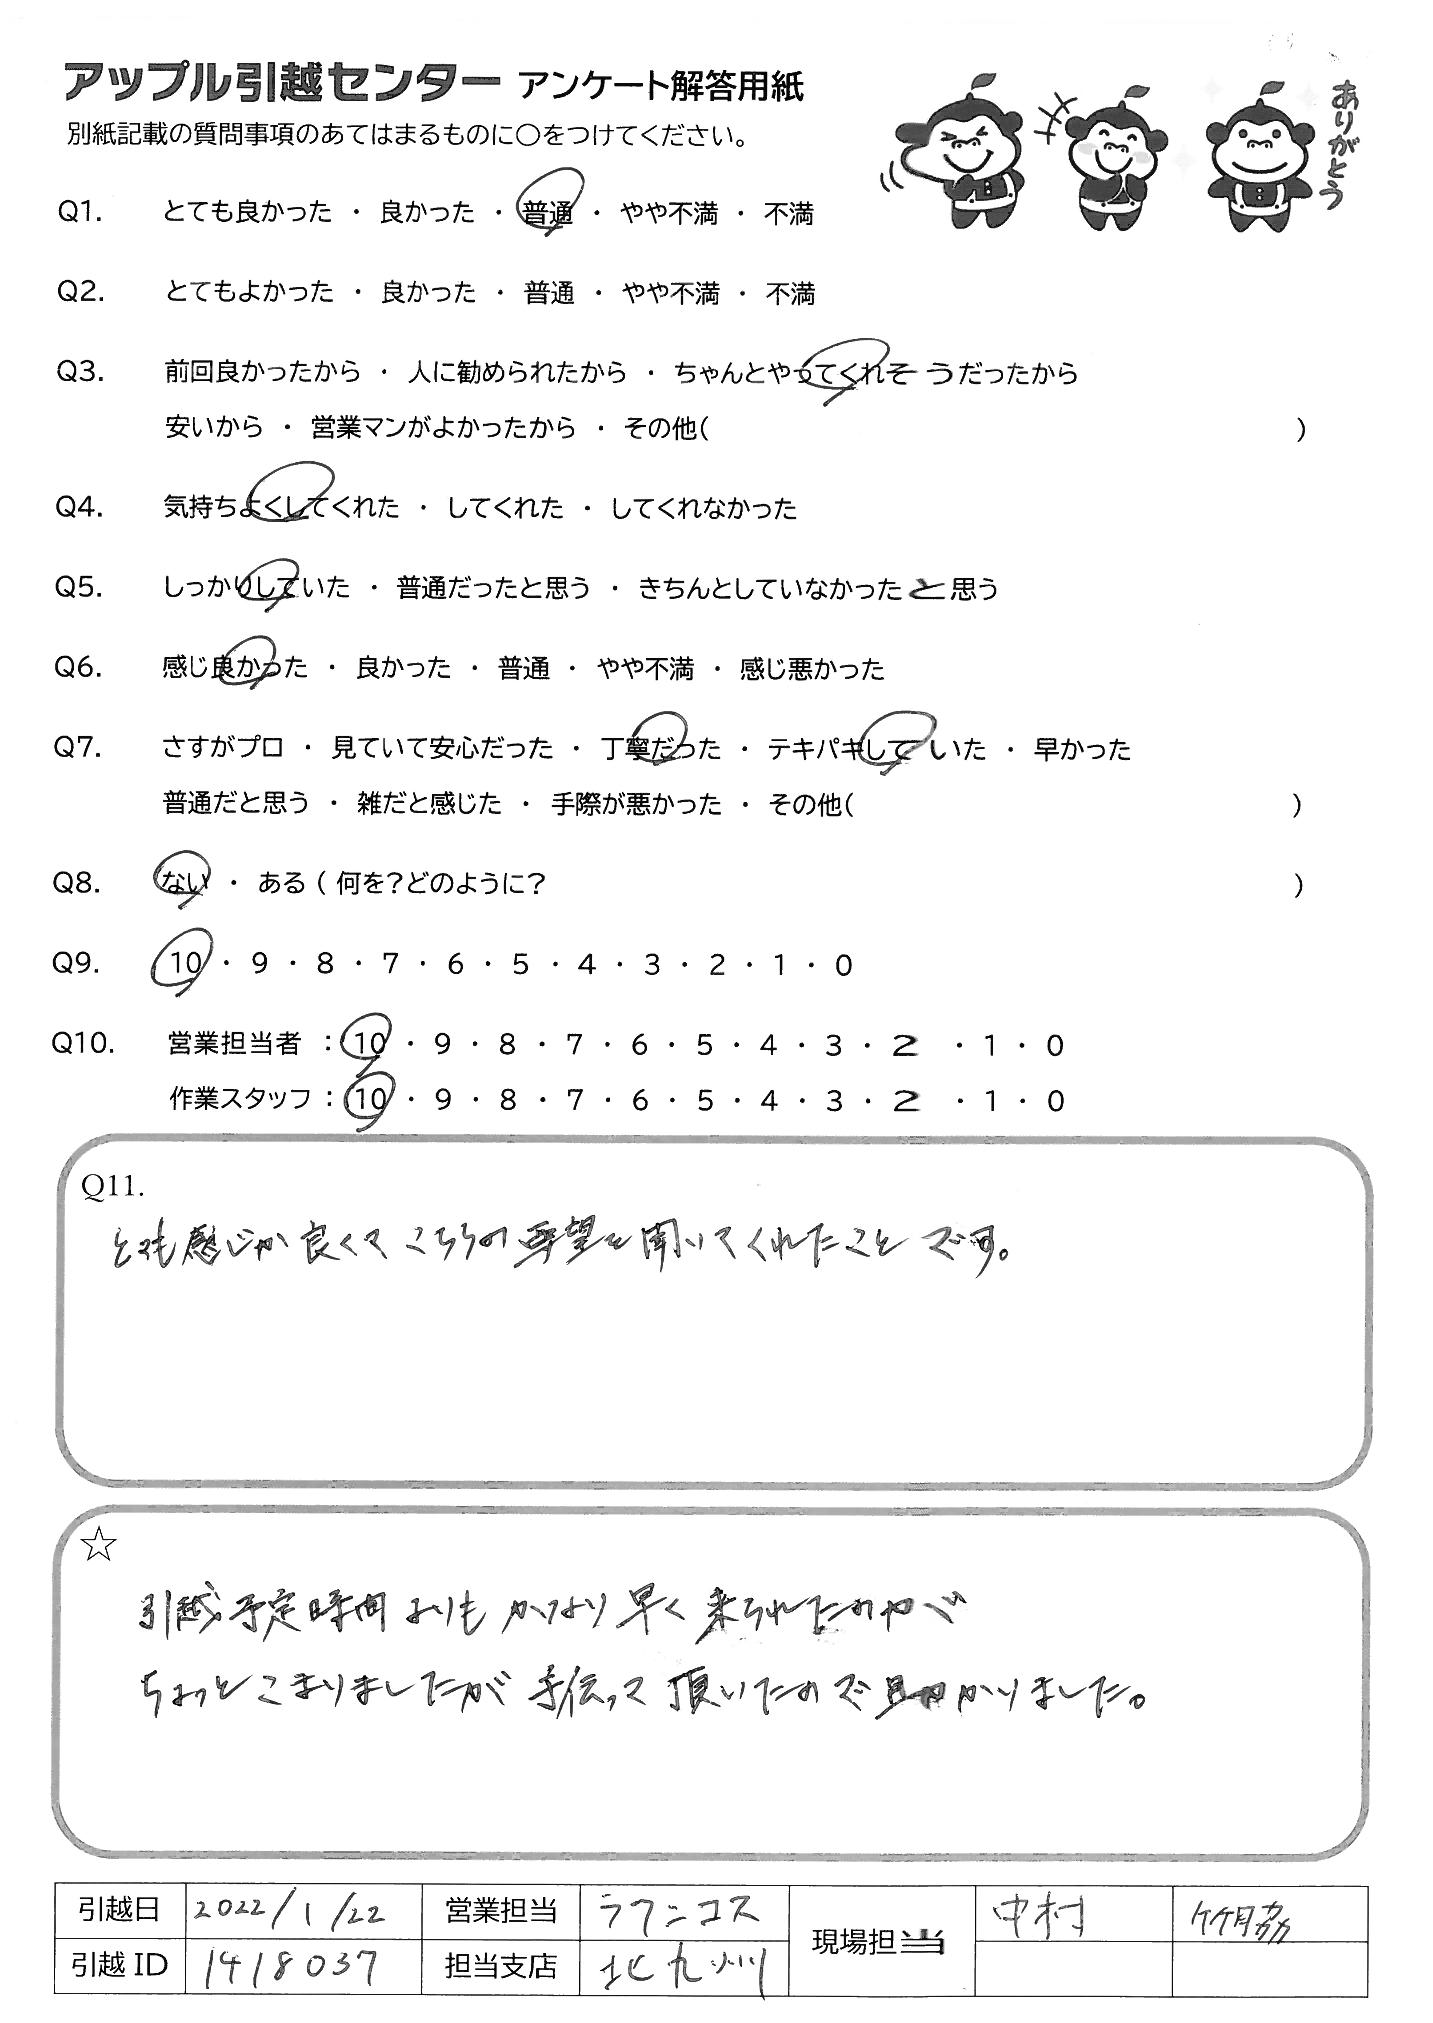 アップル引越センター アンケート解答用紙
ありがとう
別紙記載の質問事項のあてはまるものに○をつけてください。
Q1. とても良かった ・ 良かった ・ 普通 ・ やや不満 ・ 不満
Q2. とてもよかった ・ 良かった ・ 普通 ・ やや不満 ・ 不満
Q3. 前回良かったから ・ 人に勧められたから ・ ちゃんとやってくれそうだったから
安いから ・ 営業マンがよかったから ・ その他( )
Q4. 気持ちよくしてくれた ・ してくれた ・ してくれなかった
Q5. しっかりしていた ・ 普通だったと思う ・ きちんとしていなかったと思う
Q6. 感じ良かった ・ 良かった ・ 普通 ・ やや不満 ・ 感じ悪かった
Q7. さすがプロ ・ 見ていて安心だった ・ 丁寧だった ・ テキパキしていた ・ 早かった
普通だと思う ・ 雑だと感じた ・ 手際が悪かった ・ その他( )
Q8. ない ・ ある ( 何を?どのように? )
Q9. 10 ・ 9 ・ 8 ・ 7 ・ 6 ・ 5 ・ 4 ・ 3 ・ 2 ・ 1 ・ 0
Q10. 営業担当者 : 10 ・ 9 ・ 8 ・ 7 ・ 6 ・ 5 ・ 4 ・ 3 ・ 2 ・ 1 ・ 0
作業スタッフ : 10 ・ 9 ・ 8 ・ 7 ・ 6 ・ 5 ・ 4 ・ 3 ・ 2 ・ 1 ・ 0
Q11.
とても感じが良くてこちらの要望を聞いてくれたことです。
☆
引越予定時間よりもかなり早く来られたのが
ちょっとこまりましたが手伝って頂いたので かりました。
引越日 2022/1/22 営業担当 ラフニコス 現場担当 中村 竹脇
引越ID 1418037 担当支店 北九州